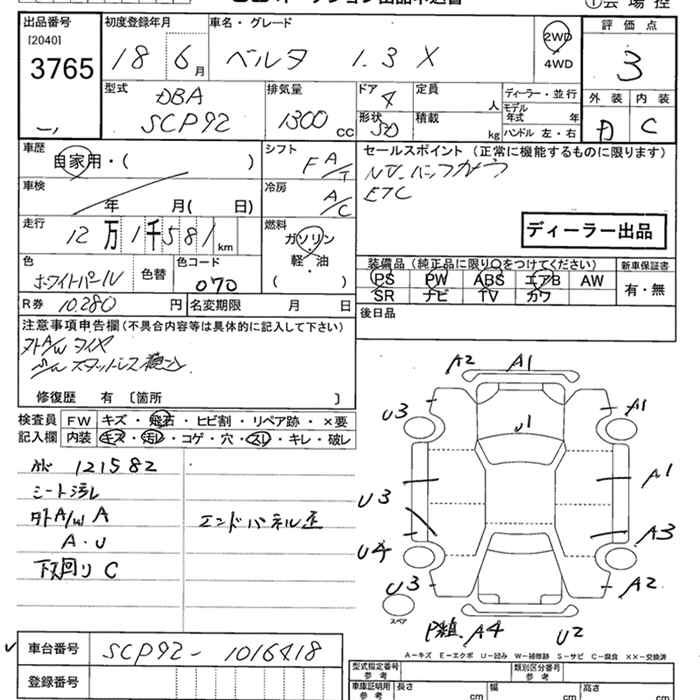 ① 会場控
出品番号
[2040]
3765
初度登録年月
18 6月
車名・グレード
ベルタ 1.3 X
2WD
・
4WD
評価点
3
外装 内装
C
型式
DBA
SCP92
排気量
1300 CC
ドア
4
形状
SD
定員
人
積載
kg
ディーラー・並行
モデル年式 年
ハンドル 左・右
車歴
自家用・( )
車検
年 月( 日)
走行
12万1千581km
色
ホワイトパール
色替
色コード
070
シフト
F A/T
冷房
A/C
燃料
ガソリン
・
軽・油
( )
セールスポイント (正常に機能するものに限ります)
ETC
ディーラー出品
装備品(純正品に限り○をつけてください)
PS PW ABS エアB AW
SR ナビ TV カワ
新車保証書
有・無
R券 10,280 円
名変期限 月 日
後日品
注意事項申告欄(不具合内容等は具体的に記入して下さい)
外A/W
スタットレス積込
修復歴 有 〔箇所 〕
検査員記入欄
FW キズ・飛石・ヒビ割・リペア跡・×要
内装 キズ・汚レ・コゲ・穴・スレ・キレ・破レ
121582
シート汚レ
外A/W A
A・U
下回りC
エンドパネル歪
A2 A1
U3 A1
U1
U3 A1
U4 A3
U3 A2
スペア
A4 U2
A-キズ E-エクボ U-凹み W-補修跡 S-サビ C-腐食 ××-交換済
車台番号 SCP92-1016418
登録番号
型式指定番号
参考
類別区分番号
参考
車庫証明用
参考
長さ cm 幅 cm 高さ cm